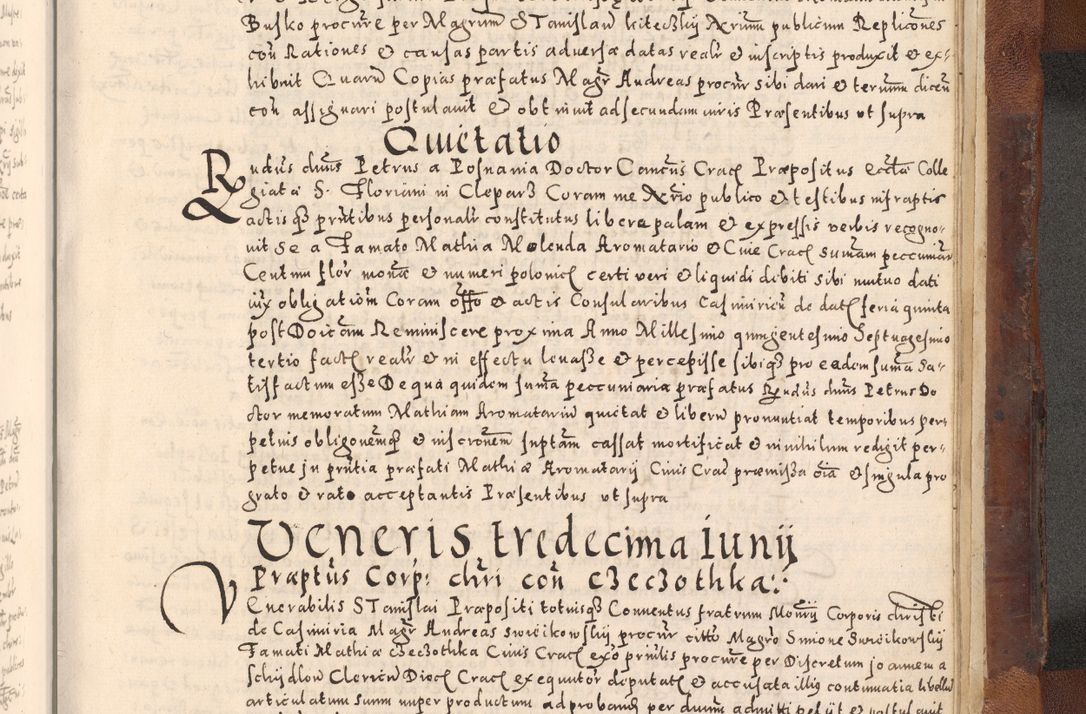 Busko procure per Magrum STanislaw kiteczkij Nrium publicum Replicones
con Rationes & causas partis adversæ datas realr & inscriptis produxit & ex-
hibuit Quarum Copias præfatus Magr Andreas procur sibi dari & termum dicen
con assignari postulavit & obtinuit ad secundum iuris Præsentibus ut supra
Quietatio
Rndus dnus Petrus a Posnania Doctor Canoncus Crac Præpositus ecctæ Colle
giatæ S. Floriani in Clepar3 Coram me Nrio publico & testibus infraptis
actis q3 prntibus personalr constitutus libere palam & expressis verbis recogno-
vit se a Famato Mathia Molenda Aromatario & Cive Crac Summam peccuniar
Centum flor mona & numeri polonic certi veri & liquidi debiti sibi mutuo dati
iux obligationem Coram offo & actis Consularibus Casimirien de dat feria quinta
post Doicam Reminiscere proxima Anno Millesimo quingentesimo Septuagesimo
tertio fact realr & in effectu levasse & percepisse sibiq3 pro eadem summa Sa-
tisfactum esse De qua quidem summa peccuniaria præfatus Rndus dnus Petrus Do
ctor memoratum Mathiam Aromatariu quietat & liberu pronuntiat temporibus per-
petuis obligonemq3 & inscronem suptam cassat mortificat & in nihilum redigit per-
petue in prntia præfati Mathiæ Aromatarij Civis Crac præmissa oia & singula pro
grato & rato acceptantis Præsentibus ut supra
Veneris tredecima Iunij
Præptus Corp: chri con Czeczothka:
Venerabilis STanislai Præpositi totiusq3 Conventus fratrum Monrij Corporis christi
de Casimiria Magr Andreas Swiecikowskij procur citto Magro Simone Swiecikowskij
Famati Mathiæ Czeczothka Civis Crac ex o prnlis procure per Discretum joannem a
Schijdlow Clericu Dioc Crac exequutor deputat & accusata illis continuatia libellu
articulatum suum nuper productum adprobandum per dnum admitti petijt & postulavit